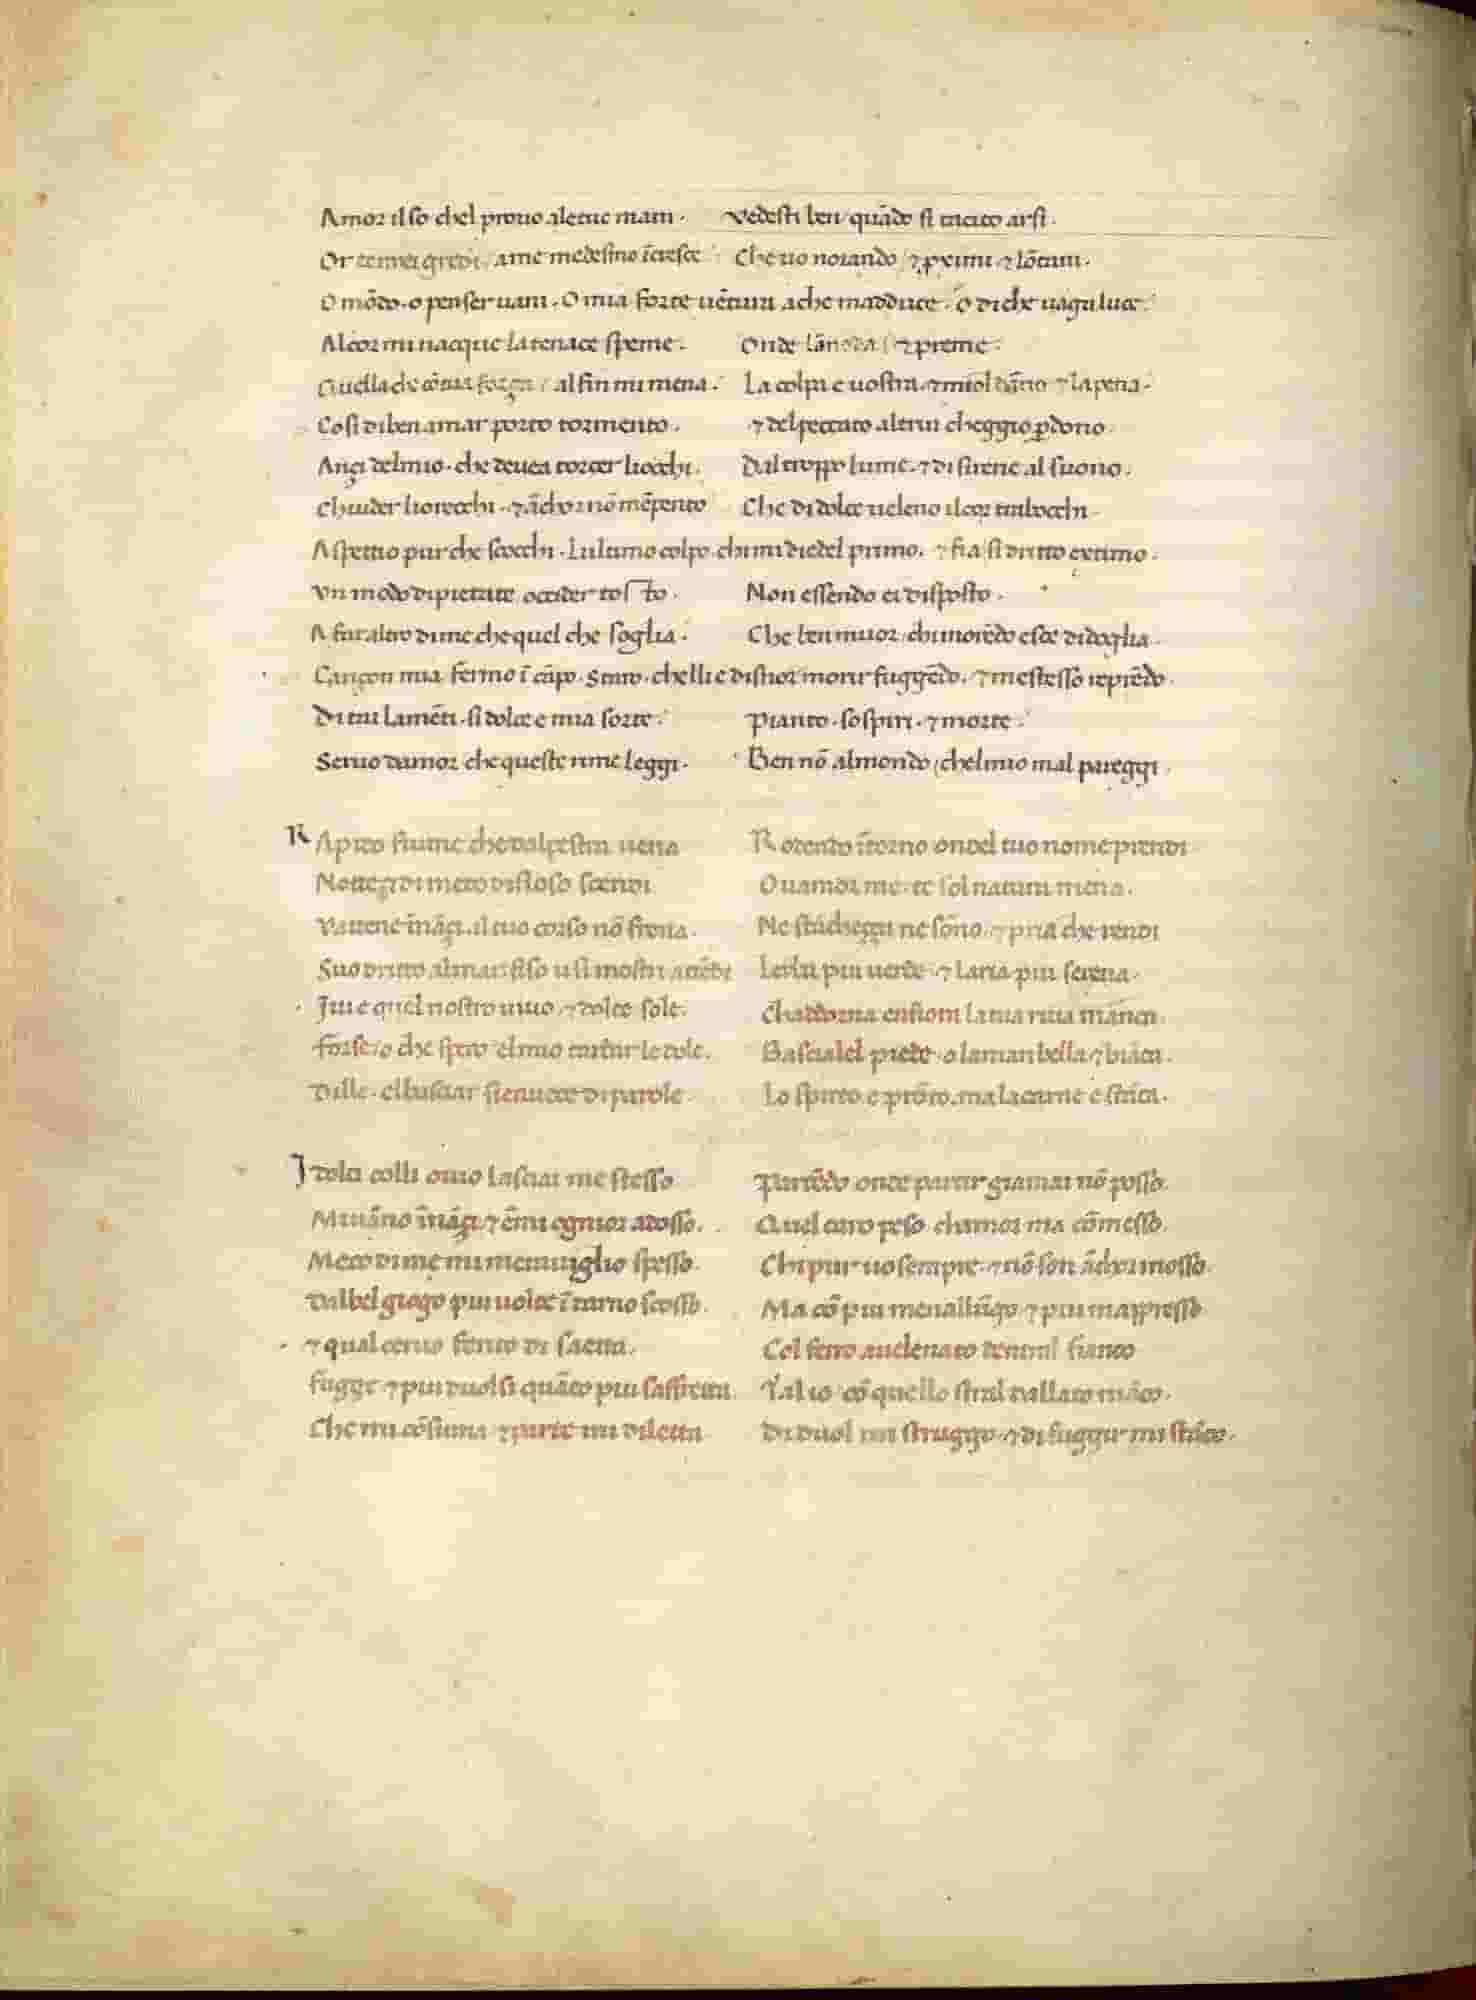 Amor il so chel prouo aletue mani . Vedesti ben quādo si tacito arsi .
Or ame medesmo īcresce Che uo notando / & lōtani .
O mōdo . o penser uani . O mia forte uētura ache madduce . O di che uaga luce .
Alcor mi nacque latenace speme . Onde & preme .
Quella che cō sua forza / al fin mi mena . La colpa e uostra . & miol dāno & lapena .
Cosi di ben amar porto tormento . & del peccato altrui cheggio ꝑdono .
Anzi delmio . che deuea torcer liocchi . Dal troppo lume . & di sirene al suono .
Chiuder liorecchi . & ācho2 nō mēpento Che di dolce ueleno il cor trabocchi .
Aspetto pur che scocchi . Lultimo colpo chi mi diedel primo . & fia si dritto extimo .
Vn modo di pietate occider tosto . Non essendo ei disposto .
A far altro di me che quel che soglia . Che ben muor chi morēdo esce di doglia .
Cançon mia fermo ī cāpo . Starò . chelli e disnor morir fuggēdo . & me stesso reprēdo .
Di tai lamēti . si dolce e mia sorte . Pianto . sospiri . & morte .
Seruo damor che queste rime leggi . Ben nō almondo / chelmio mal pareggi .
Rapido fiume che dalpestra uena Rodendo ītorno ondel tuo nome prendi
Notte & di meco disioso scendi Ouamor me . te sol natura mena .
Vattene īnāçi . il tuo corso nō frena . Ne stāchezza ne sōno . & pria che rendi
Suo dritto al mar fiso u si mostri attēdi Lerba piu uerde . & laria piu serena .
Iui e quel nostro uiuo & dolce sole . Chaddorna enfiora latua riua māncha .
Forse / o che spero / elmio tardar le dole . Basciale l piede . o laman bella & biāca .
Dille . elbasciar sienuece di parole . Lo spirto e prōto . ma la carne e stāca .
I dolci colli ouio lasciai me stesso Partēdo onde partir giamai nō posso .
Mi uāno īnāçi & ēmi ognior adosso . Quel caro peso chamor ma cōmesso .
Meco di me mi merauiglio spesso . Chi pur uo sempre . & nō son ācho2 mosso .
Dal bel giogo piu uolte īdarno scosso . Ma cō piu menallūgo & piu mappresso
& qual ceruo ferito di saetta . Col ferro auelenato dentral fianco
Fugge & piu duolsi quāto piu saffretta . Tal io cō quello stral dallato māco .
Che mi cōsuma & parte mi diletta Di duol mi struggo . & di fuggir mi stāco .